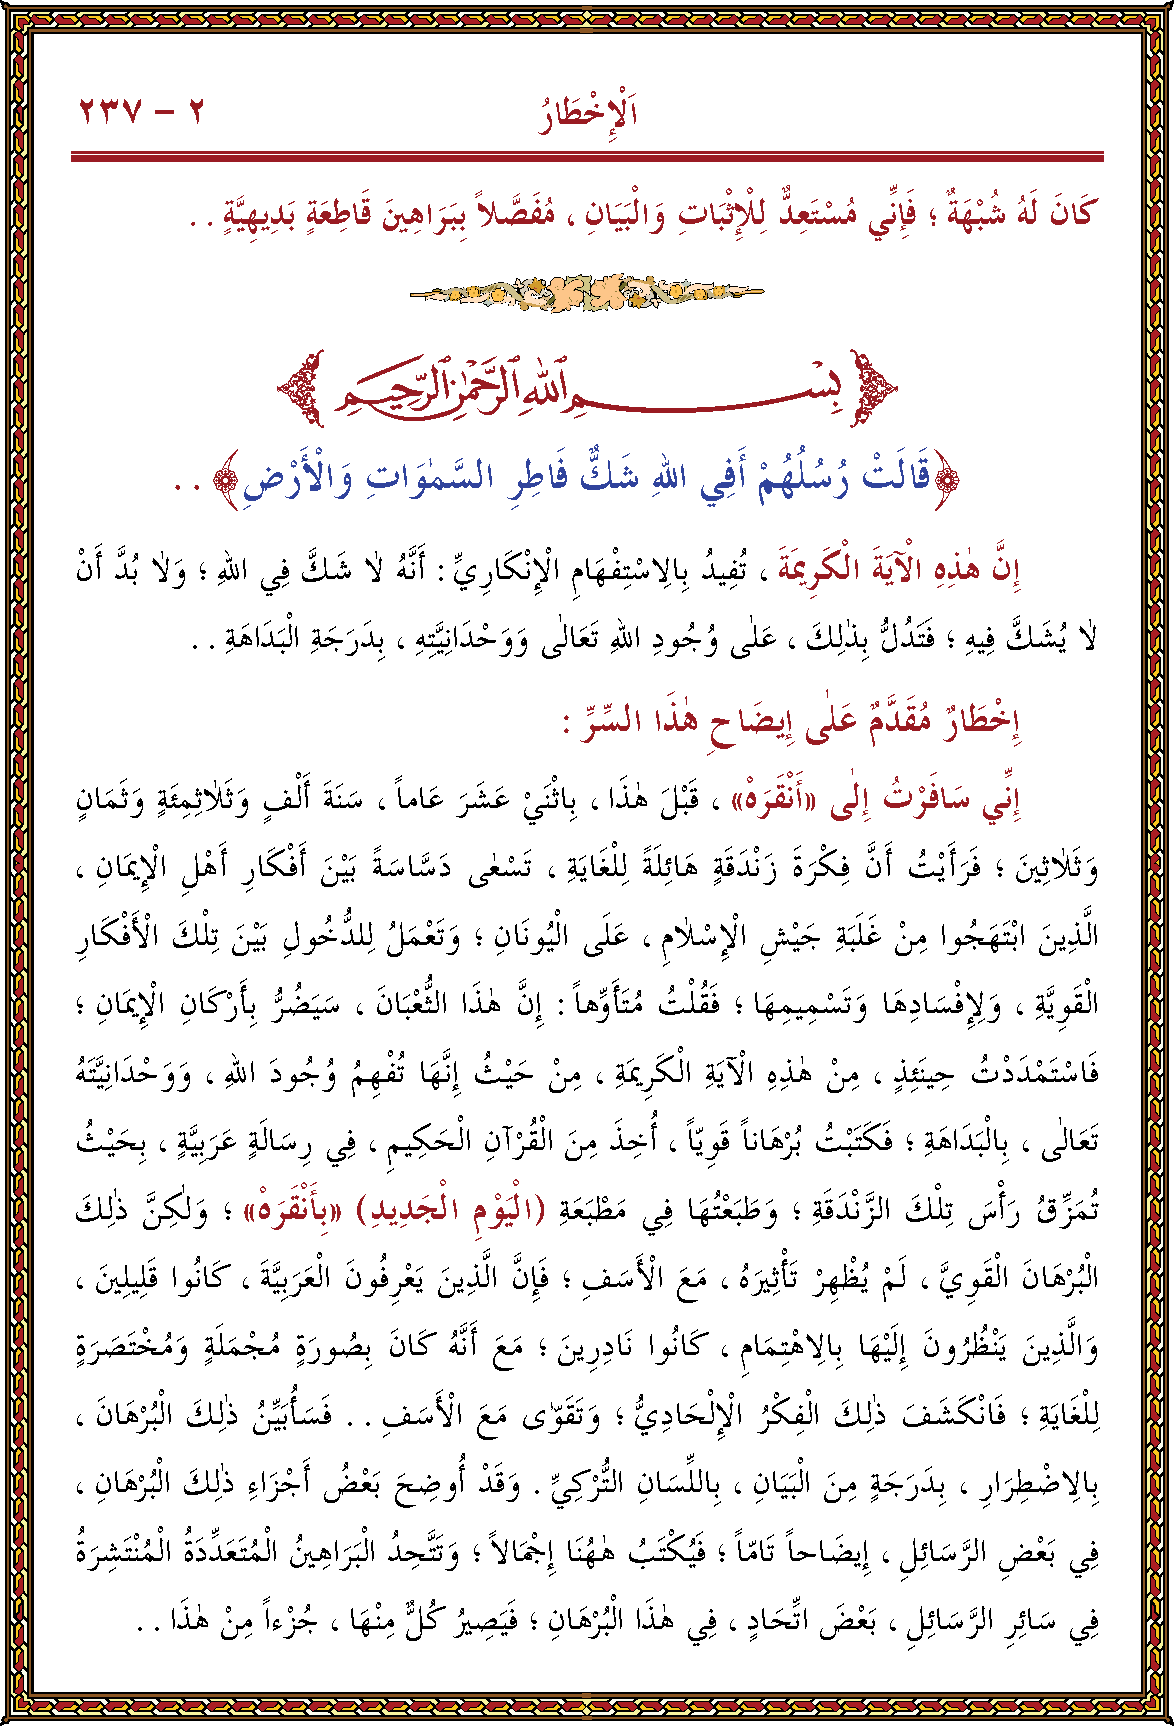 اَلْإِخْطَارُ ٢ – ٢٣٧
كَانَ لَهُ شُبْهَةٌ ؛ فَإِنِّي مُسْتَعِدٌّ لِلْإِثْبَاتِ وَالْبَيَانِ ، مُفَصَّلاً بِبَرَاهِينَ قَاطِعَةٍ بَدِيهِيَّةٍ . .
بِسْمِ ٱللهِ ٱلرَّحْمٰنِ ٱلرَّحِيمِ
﴿قَالَتْ رُسُلُهُمْ أَفِي اللهِ شَكٌّ فَاطِرِ السَّمٰوَاتِ وَالْأَرْضِ﴾ . .
إِنَّ هٰذِهِ الْآيَةَ الْكَرِيمَةَ ، تُفِيدُ بِالِاسْتِفْهَامِ الْإِنْكَارِيِّ : أَنَّهُ لاٰ شَكَّ فِي اللهِ ؛ وَلاٰ بُدَّ أَنْ
لاٰ يُشَكَّ فِيهِ ؛ فَتَدُلُّ بِذٰلِكَ ، عَلٰى وُجُودِ اللهِ تَعَالٰى وَوَحْدَانِيَّتِهِ ، بِدَرَجَةِ الْبَدَاهَةِ . .
إِخْطَارٌ مُقَدَّمٌ عَلٰى إِيضَاحِ هٰذَا السِّرِّ :
إِنِّي سَافَرْتُ إِلٰى «أَنْقَرَهْ» ، قَبْلَ هٰذَا ، بِاثْنَيْ عَشَرَ عَاماً ، سَنَةَ أَلْفٍ وَثَلاٰثِمِئَةٍ وَثَمَانٍ
وَثَلاٰثِينَ ؛ فَرَأَيْتُ أَنَّ فِكْرَةَ زَنْدَقَةٍ هَائِلَةً لِلْغَايَةِ ، تَسْعٰى دَسَّاسَةً بَيْنَ أَفْكَارِ أَهْلِ الْإِيمَانِ ،
الَّذِينَ ابْتَهَجُوا مِنْ غَلَبَةِ جَيْشِ الْإِسْلاٰمِ ، عَلَى الْيُونَانِ ؛ وَتَعْمَلُ لِلدُّخُولِ بَيْنَ تِلْكَ الْأَفْكَارِ
الْقَوِيَّةِ ، وَلِإِفْسَادِهَا وَتَسْمِيمِهَا ؛ فَقُلْتُ مُتَأَوِّهاً : إِنَّ هٰذَا الثُّعْبَانَ ، سَيَضُرُّ بِأَرْكَانِ الْإِيمَانِ ؛
فَاسْتَمْدَدْتُ حِينَئِذٍ ، مِنْ هٰذِهِ الْآيَةِ الْكَرِيمَةِ ، مِنْ حَيْثُ إِنَّهَا تُفْهِمُ وُجُودَ اللهِ ، وَوَحْدَانِيَّتَهُ
تَعَالٰى ، بِالْبَدَاهَةِ ؛ فَكَتَبْتُ بُرْهَاناً قَوِيّاً ، أُخِذَ مِنَ الْقُرْآنِ الْحَكِيمِ ، فِي رِسَالَةٍ عَرَبِيَّةٍ ، بِحَيْثُ
تُمَزِّقُ رَأْسَ تِلْكَ الزَّنْدَقَةِ ؛ وَطَبَعْتُهَا فِي مَطْبَعَةِ (الْيَوْمِ الْجَدِيدِ) «بِأَنْقَرَهْ» ؛ وَلٰكِنَّ ذٰلِكَ
الْبُرْهَانَ الْقَوِيَّ ، لَمْ يُظْهِرْ تَأْثِيرَهُ ، مَعَ الْأَسَفِ ؛ فَإِنَّ الَّذِينَ يَعْرِفُونَ الْعَرَبِيَّةَ ، كَانُوا قَلِيلِينَ ،
وَالَّذِينَ يَنْظُرُونَ إِلَيْهَا بِالِاهْتِمَامِ ، كَانُوا نَادِرِينَ ؛ مَعَ أَنَّهُ كَانَ بِصُورَةٍ مُجْمَلَةٍ وَمُخْتَصَرَةٍ
لِلْغَايَةِ ؛ فَانْكَشَفَ ذٰلِكَ الْفِكْرُ الْإِلْحَادِيُّ ؛ وَتَقَوّٰى مَعَ الْأَسَفِ . . فَسَأُبَيِّنُ ذٰلِكَ الْبُرْهَانَ ،
بِالِاضْطِرَارِ ، بِدَرَجَةٍ مِنَ الْبَيَانِ ، بِاللِّسَانِ التُّرْكِيِّ . وَقَدْ أُوضِحَ بَعْضُ أَجْزَاءِ ذٰلِكَ الْبُرْهَانِ ،
فِي بَعْضِ الرَّسَائِلِ ، إِيضَاحاً تَامّاً ؛ فَيُكْتَبُ هٰهُنَا إِجْمَالاً ؛ وَتَتَّحِدُ الْبَرَاهِينُ الْمُتَعَدِّدَةُ الْمُنْتَشِرَةُ
فِي سَائِرِ الرَّسَائِلِ ، بَعْضَ اتِّحَادٍ ، فِي هٰذَا الْبُرْهَانِ ؛ فَيَصِيرُ كُلٌّ مِنْهَا ، جُزْءاً مِنْ هٰذَا . .